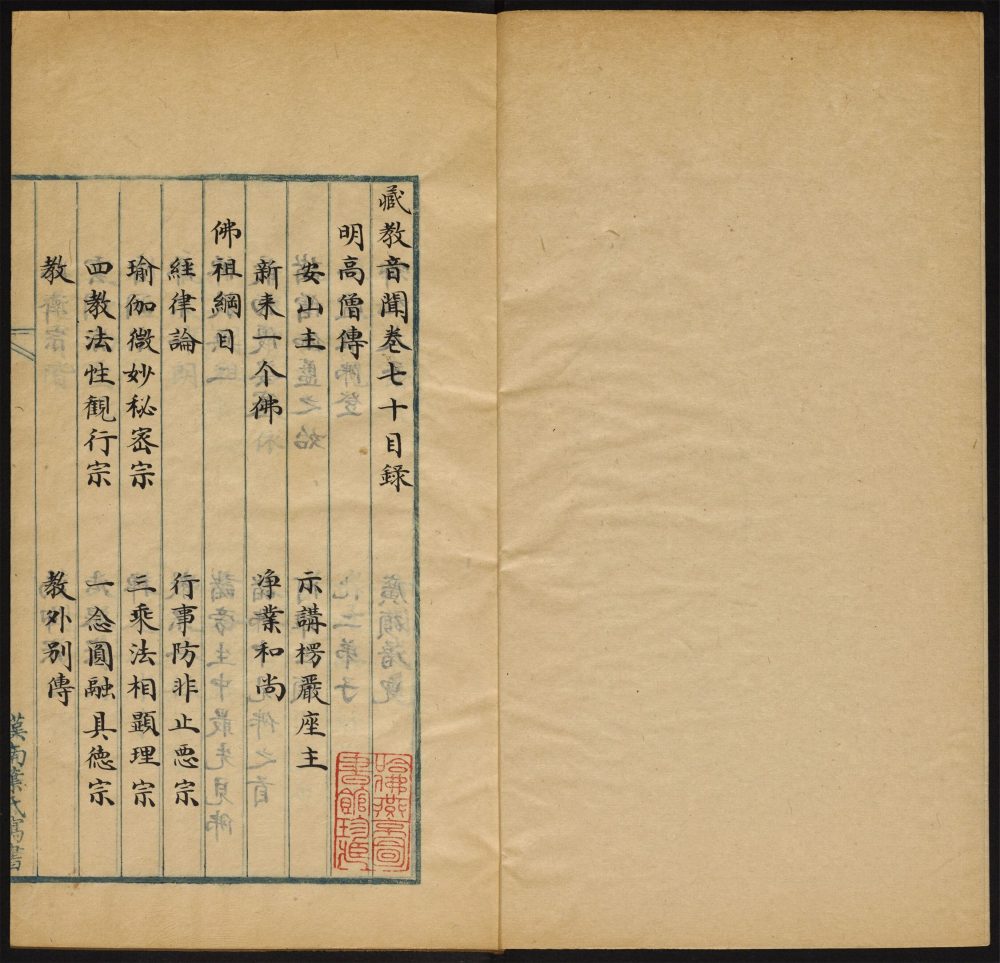 藏教音聞卷七十目錄
明高僧傳
安山主 示講楞嚴座主
新来一个佛 淨業和尚
佛祖綱目
經律論 行事防非止惡宗
瑜伽微妙秘密宗 三乘法相顯理宗
四教法性觀行宗 一念圓融具德宗
教 教外別傳
漢南葉氏寫書
哈佛燕京圖書館珍藏